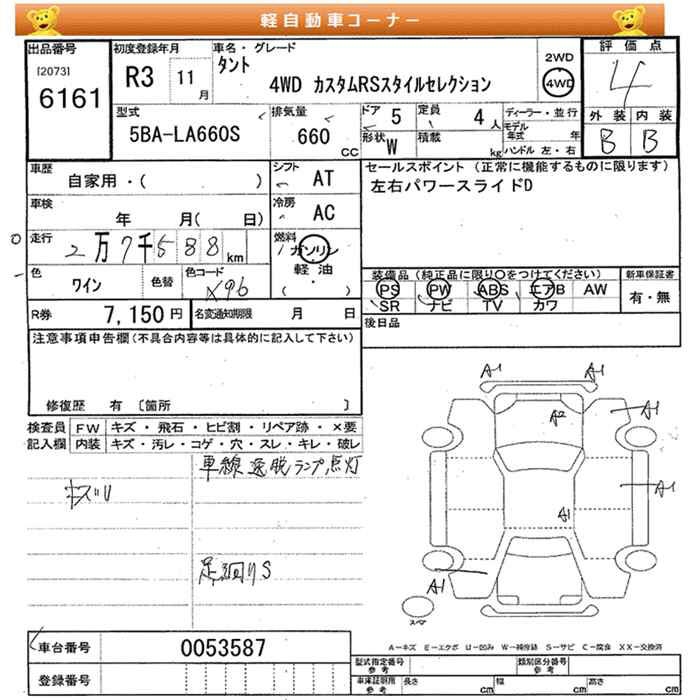 軽自動車コーナー
出品番号
[2073]
6161
初度登録年月
R3 11月
車名・グレード
タント
4WD カスタムRSスタイルセレクション
2WD
4WD
評価点
4
外装 内装
B B
型式
5BA-LA660S
排気量
660 CC
ドア 5
形状 W
定員 4人
積載 kg
ディーラー・並行
モデル年式 年
ハンドル 左・右
車歴
自家用・( )
車検
年 月( 日)
走行
2万7千588km
色
ワイン
色替
色コード
X96
シフト AT
冷房 AC
燃料
ガソリン
軽油
( ・ )
セールスポイント (正常に機能するものに限ります)
左右パワースライドD
装備品 (純正品に限り○をつけてください)
PS PW ABS エアB AW
SR ナビ TV カワ
新車保証書
有・無
R券 7,150円
名変通知期限 月 日
後日品
注意事項申告欄(不具合内容等は具体的に記入して下さい)
修復歴 有 〔箇所 〕
検査員記入欄
FW キズ・飛石・ヒビ割・リペア跡・×要
内装 キズ・汚レ・コゲ・穴・スレ・キレ・破レ
キズU
車線逸脱ランプ点灯
足廻りS
A1
A1
A2
A1
A1
A1
A1
スペア
A−キズ E−エクボ U−凹み W−補修跡 S−サビ C−腐食 XX−交換済
車台番号 0053587
登録番号
型式指定番号 参考
類別区分番号 参考
車庫証明用 参考
長さ cm
幅 cm
高さ cm